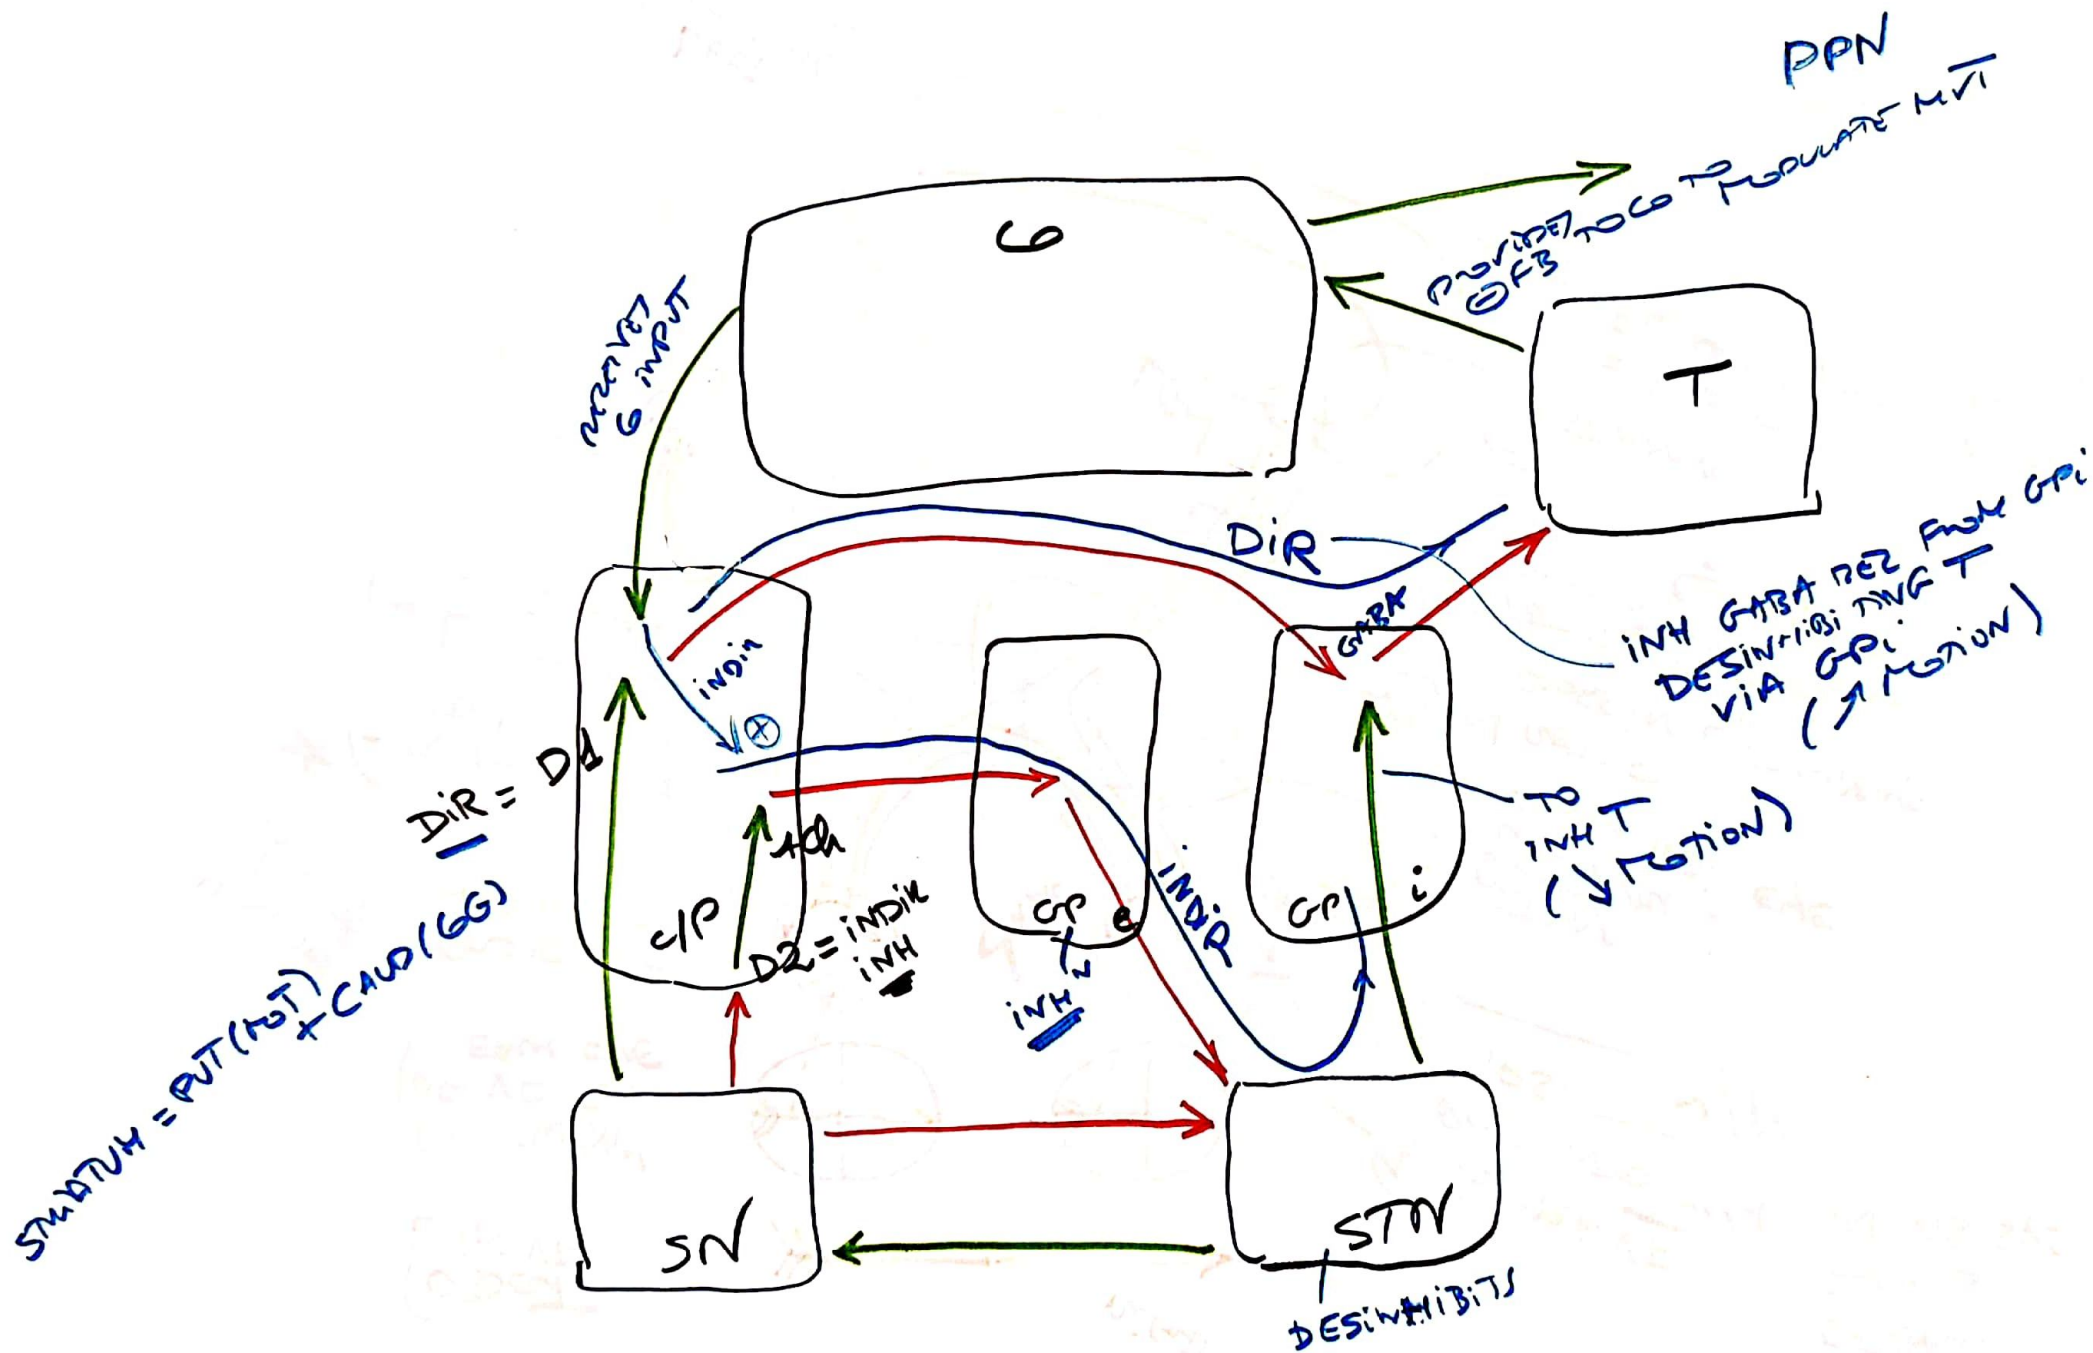 PPN
PROVIDES
⊖ FB TO CO TO MODULATE MVT
CO
RECEIVES
CO INPUT
T
DiR
GABA
INH GABA REL FROM GPi
DESINHIBITING T
VIA GPi
(↑ MOTION)
iNDiR
⊕
DiR = D1
ACh
C/P
D2 = iNDiR
iNH
GP e
iNH
iNDiR
GP i
TO
INH T
(↓ MOTION)
STRIATUM = PUT (MOT)
+ CAUD (COG)
SN
STN
DESiNHiBiTS